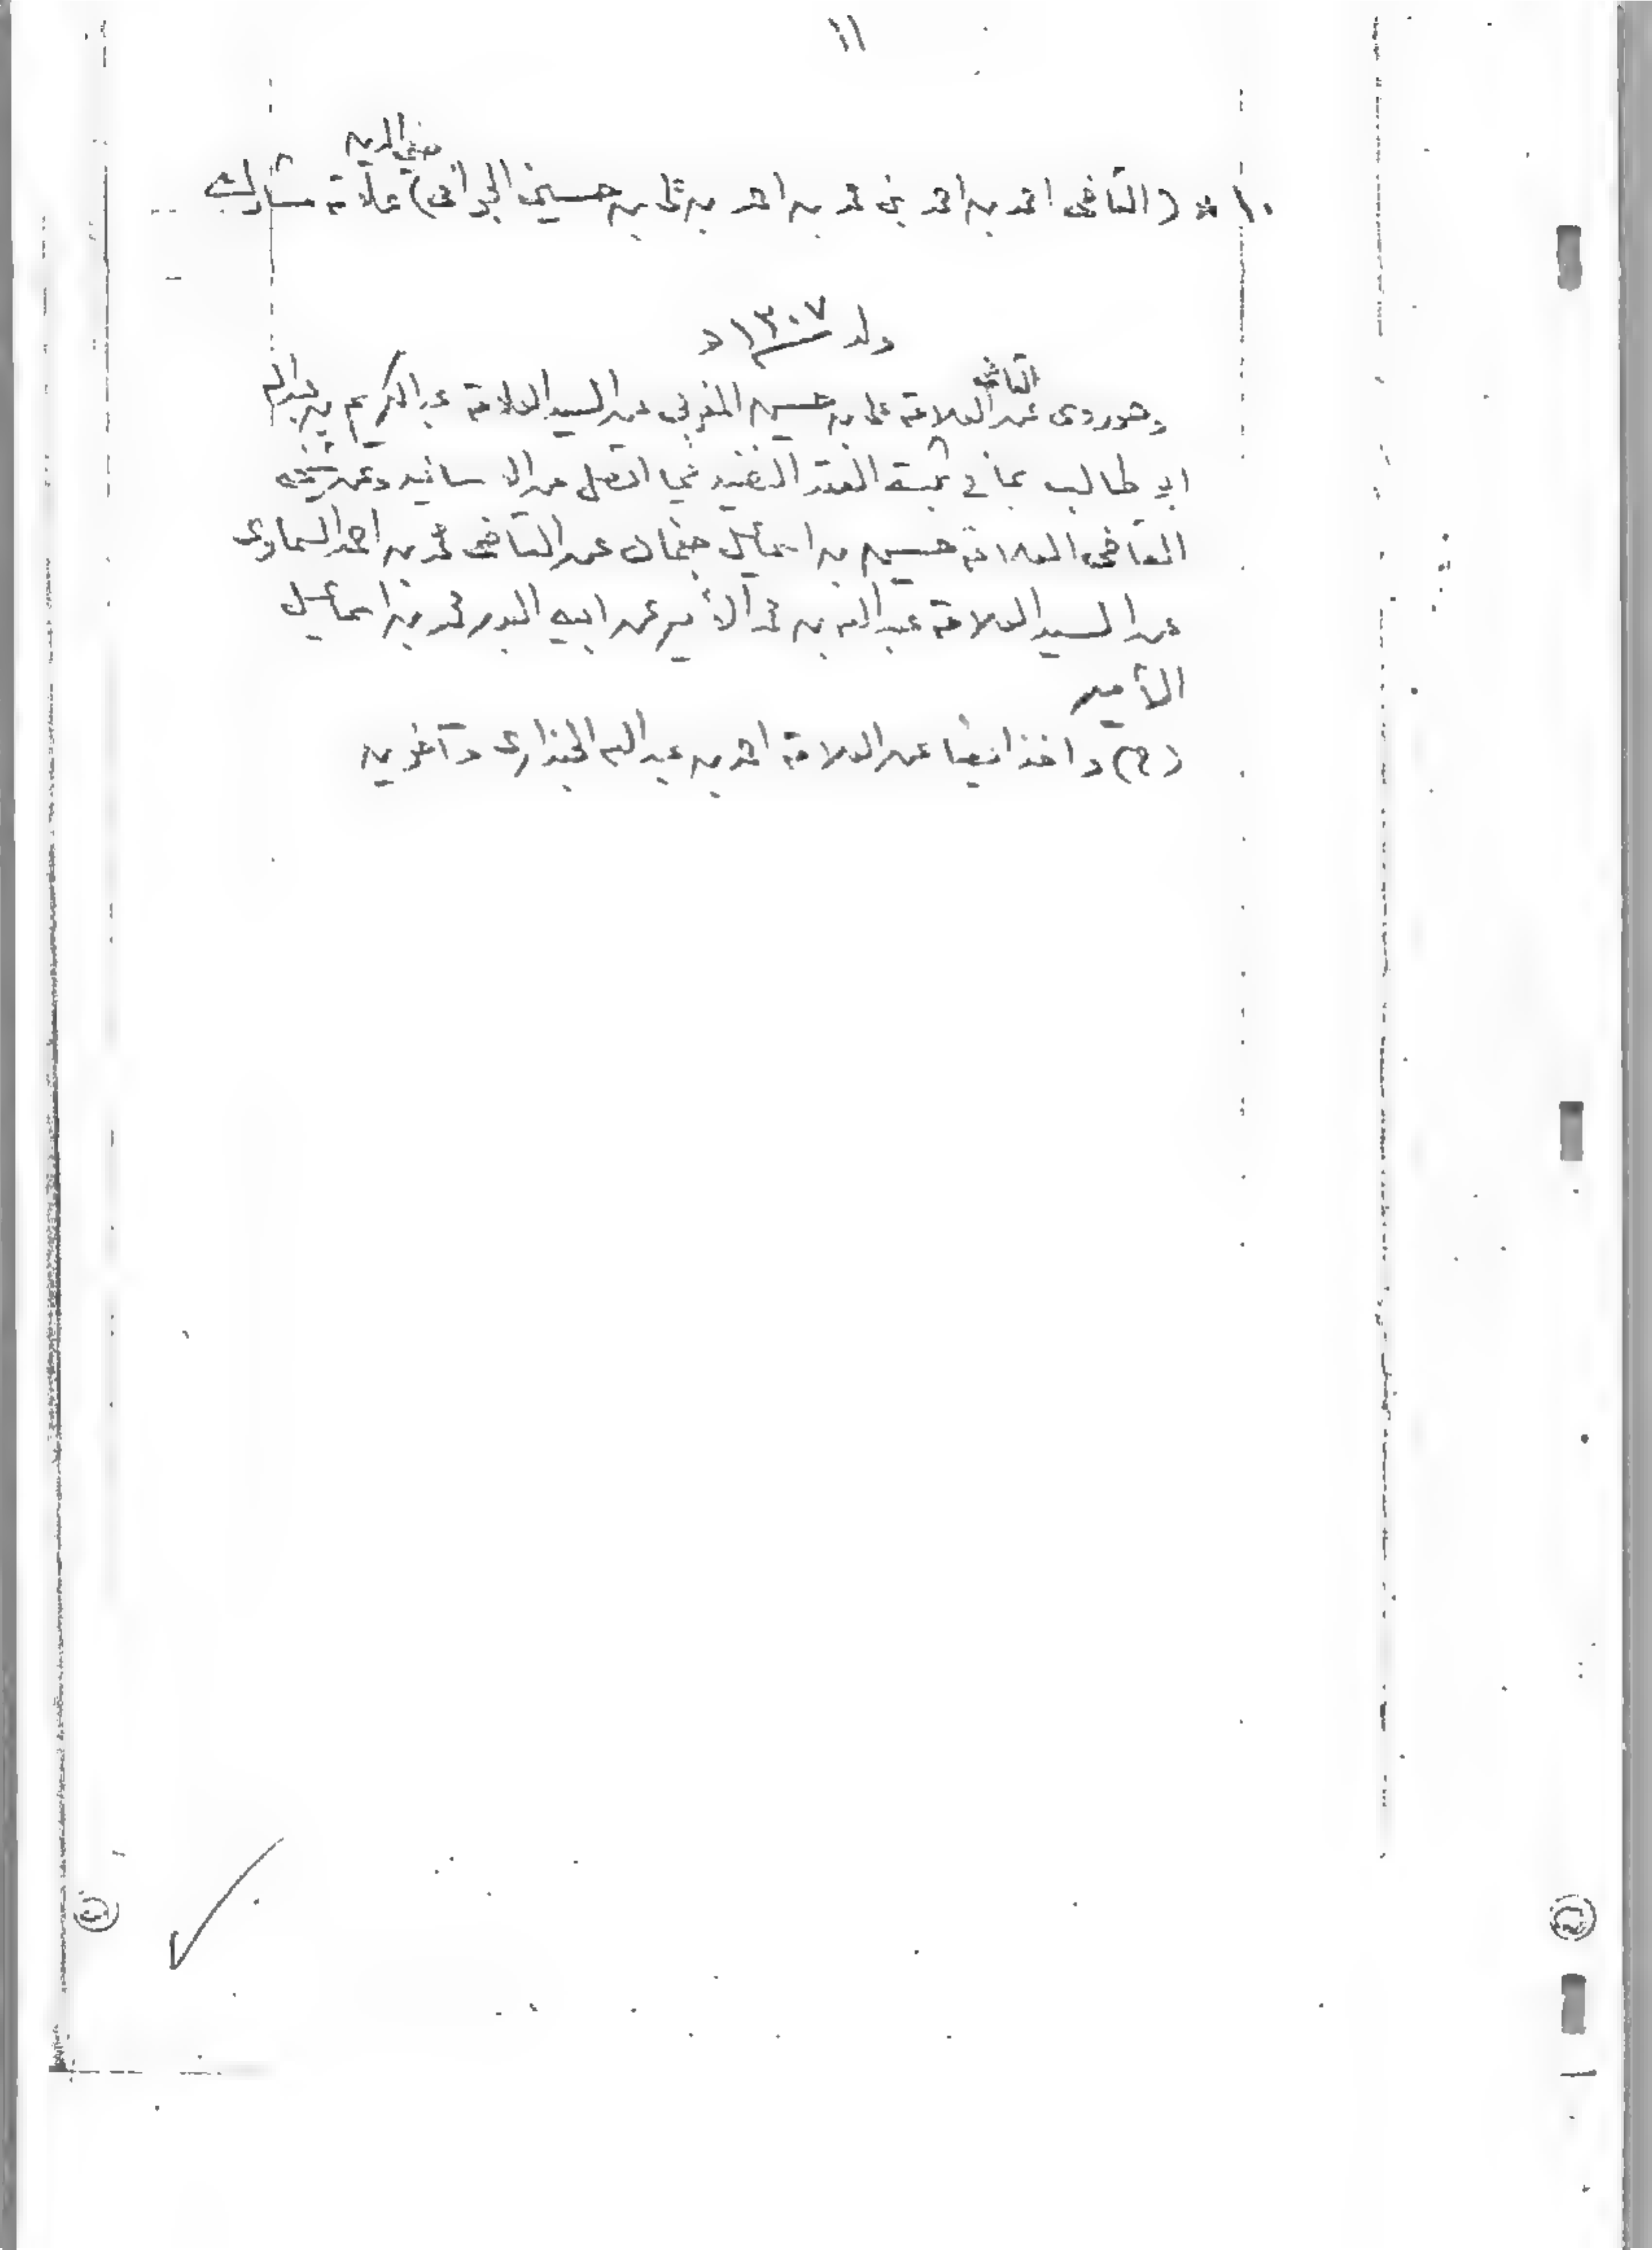 ١١
صفي الدين
١٠ * (القاضي احمد بن احمد بن محمد بن احمد بن علي بن حسين الجرافي) علامة مشارك
ولد ١٣٠٧ه
القاضي
وهو روى عن العلامة علي بن حسين المغربي عن السيد العلامة عبد الكريم بن عبدالله
ابي طالب بما في ثبته العقد النضيد فيما اتصل من الاسانيد وعن شيخه
القاضي العلامة حسين بن اسماعيل جغمان عن القاضي محمد بن احمد السماوي
عن السيد العلامة عبد الله بن محمد الأمير عن ابيه البدر محمد بن اسماعيل
الأمير
(ح) واخذ ايضا عن العلامة احمد بن عبد الله الجنداري وآخرين